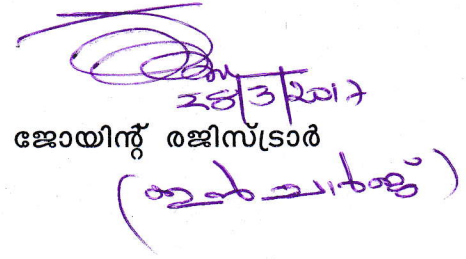 28/3/2017
ജോയിന്റ് രജിസ്ട്രാർ
(ഇൻ ചാർജ്)